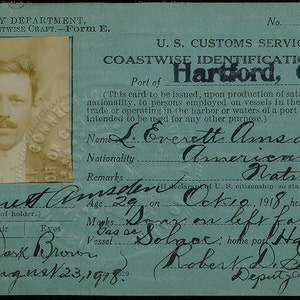 Y DEPARTMENT,
STWISE CRAFT.—FORM E.
No.
U. S. CUSTOMS SERVIC
COASTWISE IDENTIFICATION
Port of Hartford, C
(This card to be issued, upon production of satis
nationality, to persons employed on vessels in the
trade or operating in the harbor or waters of
intended to be used for any other purpose.)
Name L. Everett Amsd
Nationality America
Remarks Nati
(If declarant of U. S. citizenship, so sta
rett Amsden
Age 29 on Oct 10, 1918, he
Marks Scar on left fo
Hair Eyes
Vessel Solace, home port Ha
Dark Brown
August 23, 1918.
Robert
Deputy